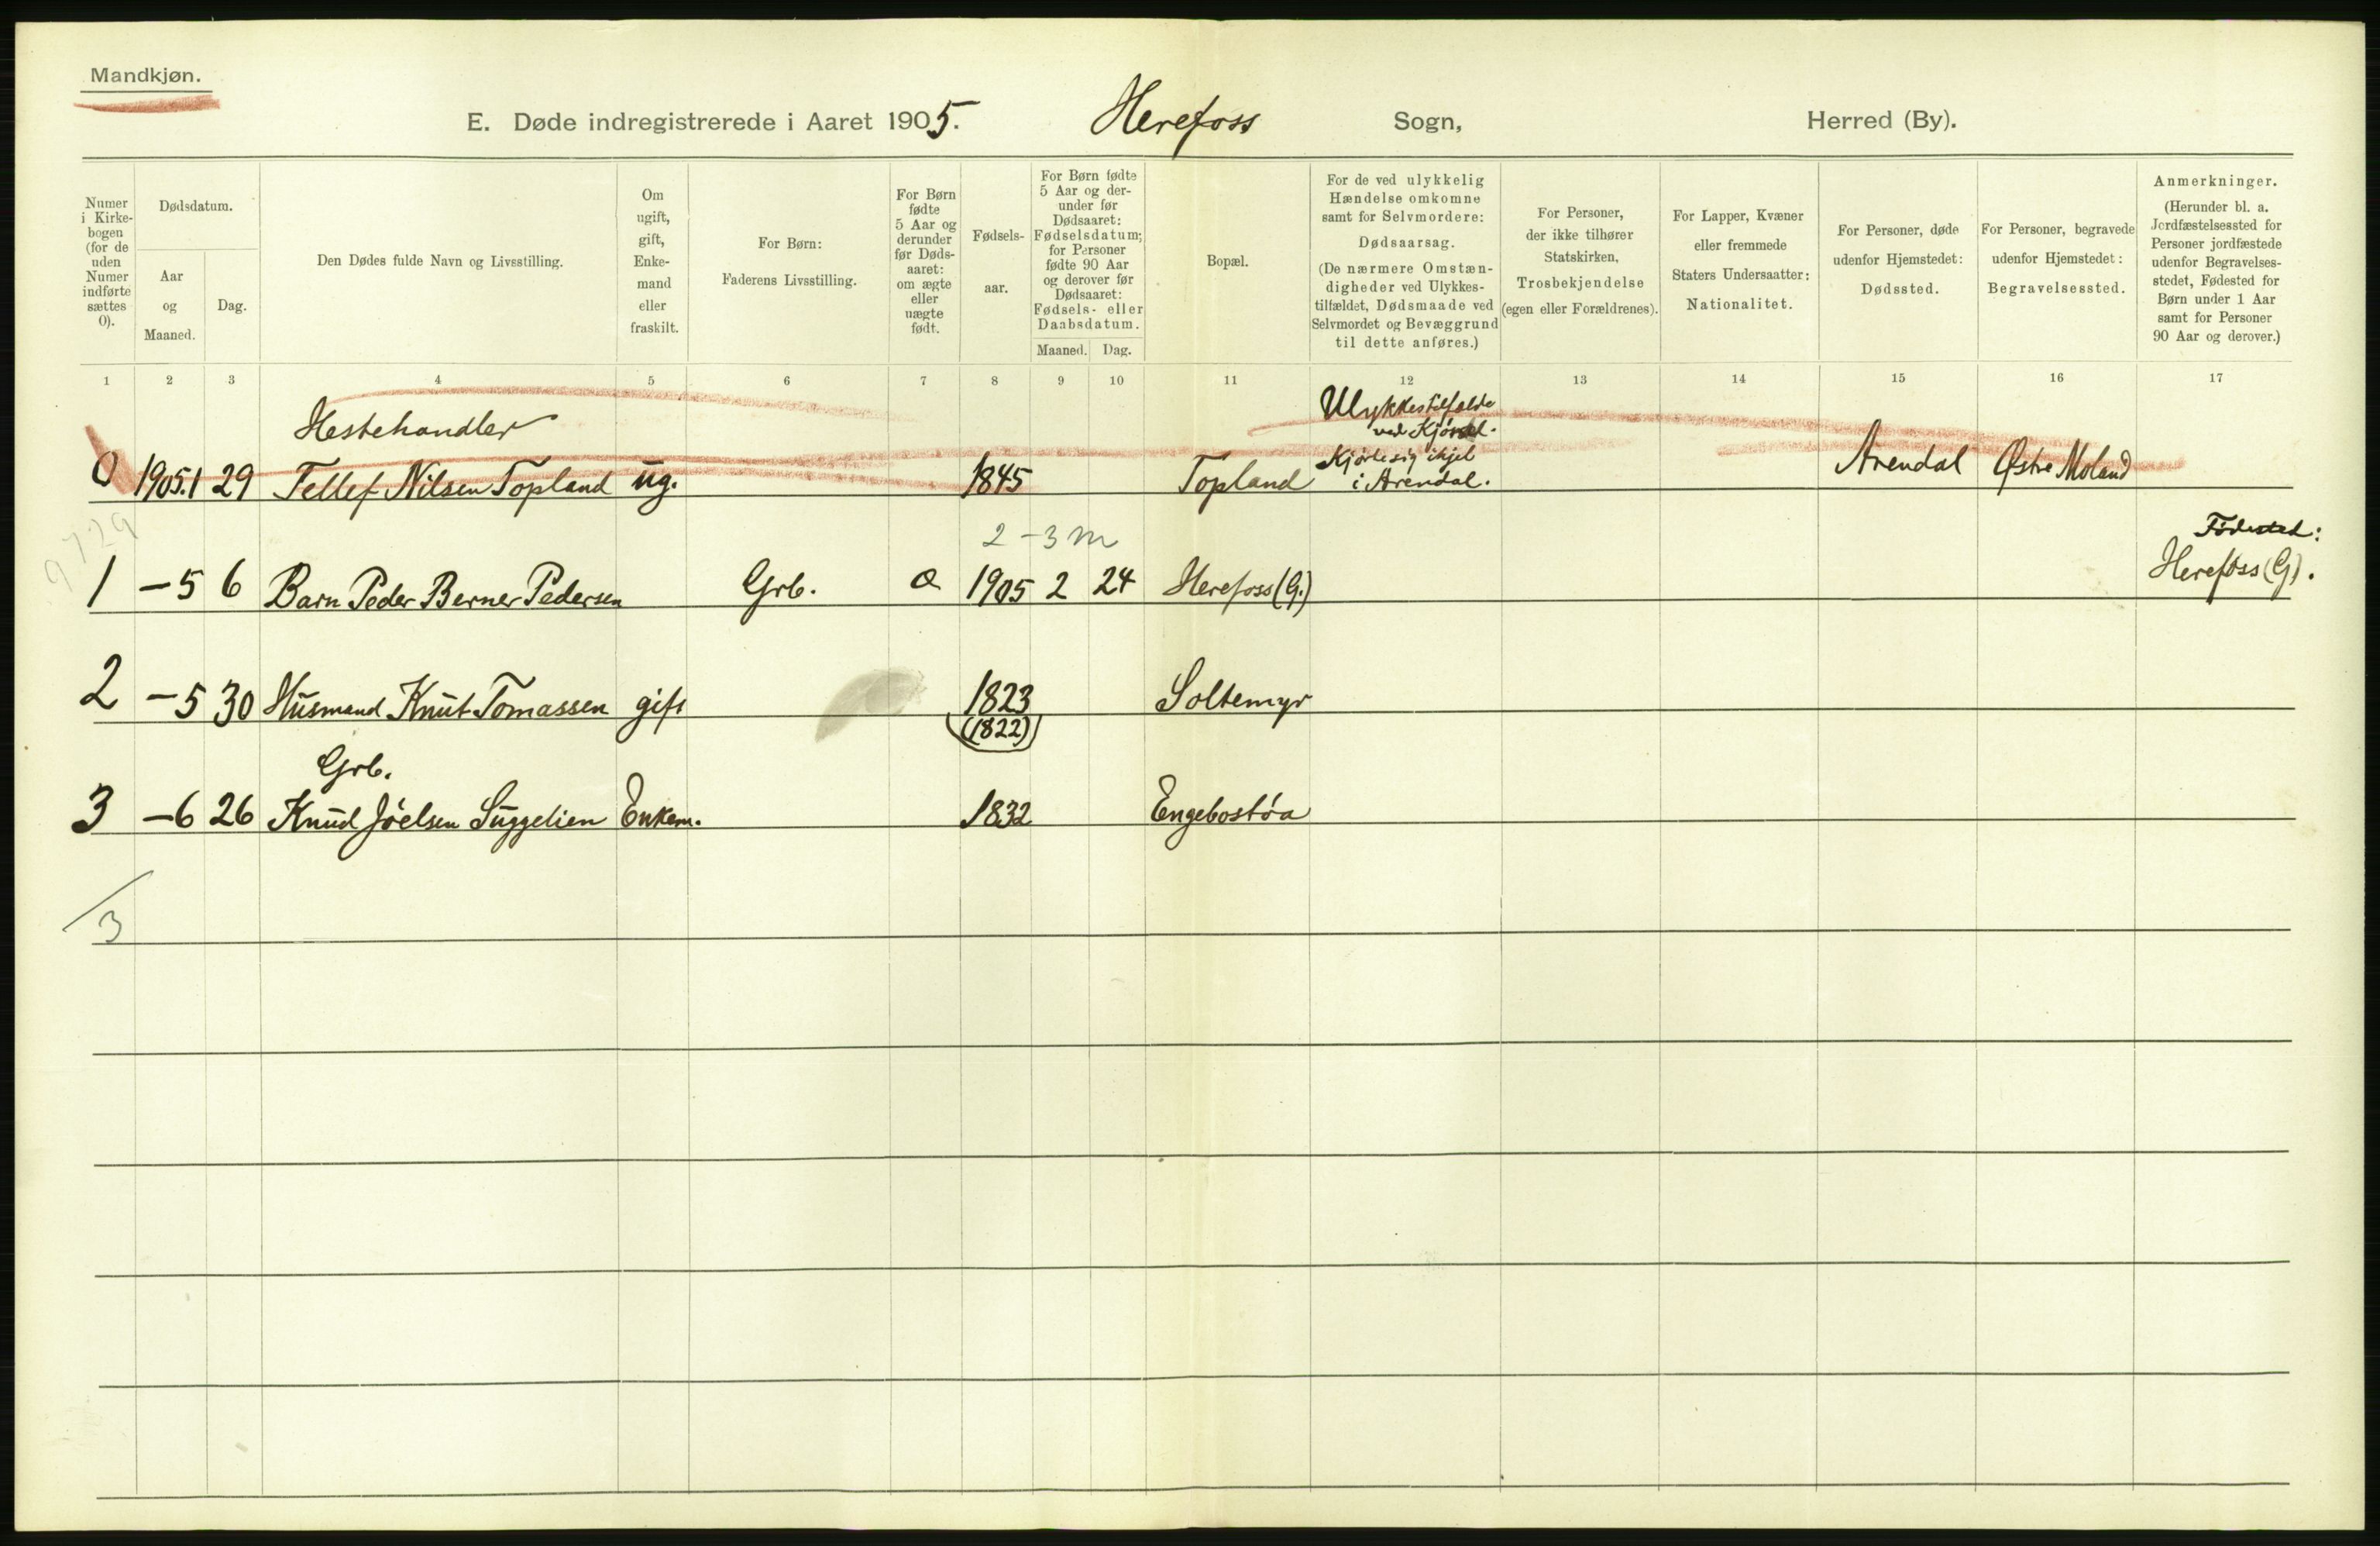 Mandkjøn.
E. Døde indregistrerede i Aaret 1905. Herefoss Sogn, Herred (By).
Numer
i Kirke-
bogen
(for de
uden
Numer
indførte
sættes
0).
Dødsdatum.
Aar
og
Maaned.
Dag.
Den Dødes fulde Navn og Livsstilling.
Om
ugift,
gift,
Enke-
mand
eller
fraskilt.
For Børn:
Faderens Livsstilling.
For Børn
fødte
5 Aar og
derunder
før Døds-
aaret:
om ægte
eller
uægte
født.
Fødsels-
aar.
For Børn fødte
5 Aar og der-
under før
Dødsaaret:
Fødselsdatum;
for Personer
fødte 90 Aar
og derover før
Dødsaaret:
Fødsels- eller
Daabsdatum.
Maaned. Dag.
Bopæl.
For de ved ulykkelig
Hændelse omkomne
samt for Selvmordere:
Dødsaarsag.
(De nærmere Omstæn-
digheder ved Ulykkes-
tilfældet, Dødsmaade ved
Selvmordet og Bevæggrund
til dette anføres.)
For Personer,
der ikke tilhører
Statskirken,
Trosbekjendelse
(egen eller Forældrenes).
For Lapper, Kvæner
eller fremmede
Staters Undersaatter:
Nationalitet.
For Personer, døde
udenfor Hjemstedet:
Dødssted.
For Personer, begravede
udenfor Hjemstedet:
Begravelsessted.
Anmerkninger.
(Herunder bl. a.
Jordfæstelsessted for
Personer jordfæstede
udenfor Begravelses-
stedet, Fødested for
Børn under 1 Aar
samt for Personer
90 Aar og derover.)
1 2 3 4 5 6 7 8 9 10 11 12 13 14 15 16 17
Hestehandler
Ulykkestilfælde
ved Kjørsel.
Kjørte sig ihjel
0 1905.1 29 Tellef Nilsen Topland ug. 1845 Topland i Arendal. Arendal Østre Moland
9729
2-3 m
Fødested:
1 - 5 6 Barn Peder Berner Pedersen Grb. 1905 2 24 Herefoss (G.) Herefoss (G).
2 - 5 30 Husmand Knut Tomassen gift 1823 Soltemyr
(1822)
Grb.
3 - 6 26 Knud Jóelsen Suggelien Enkem. 1832 Engebostøa
3